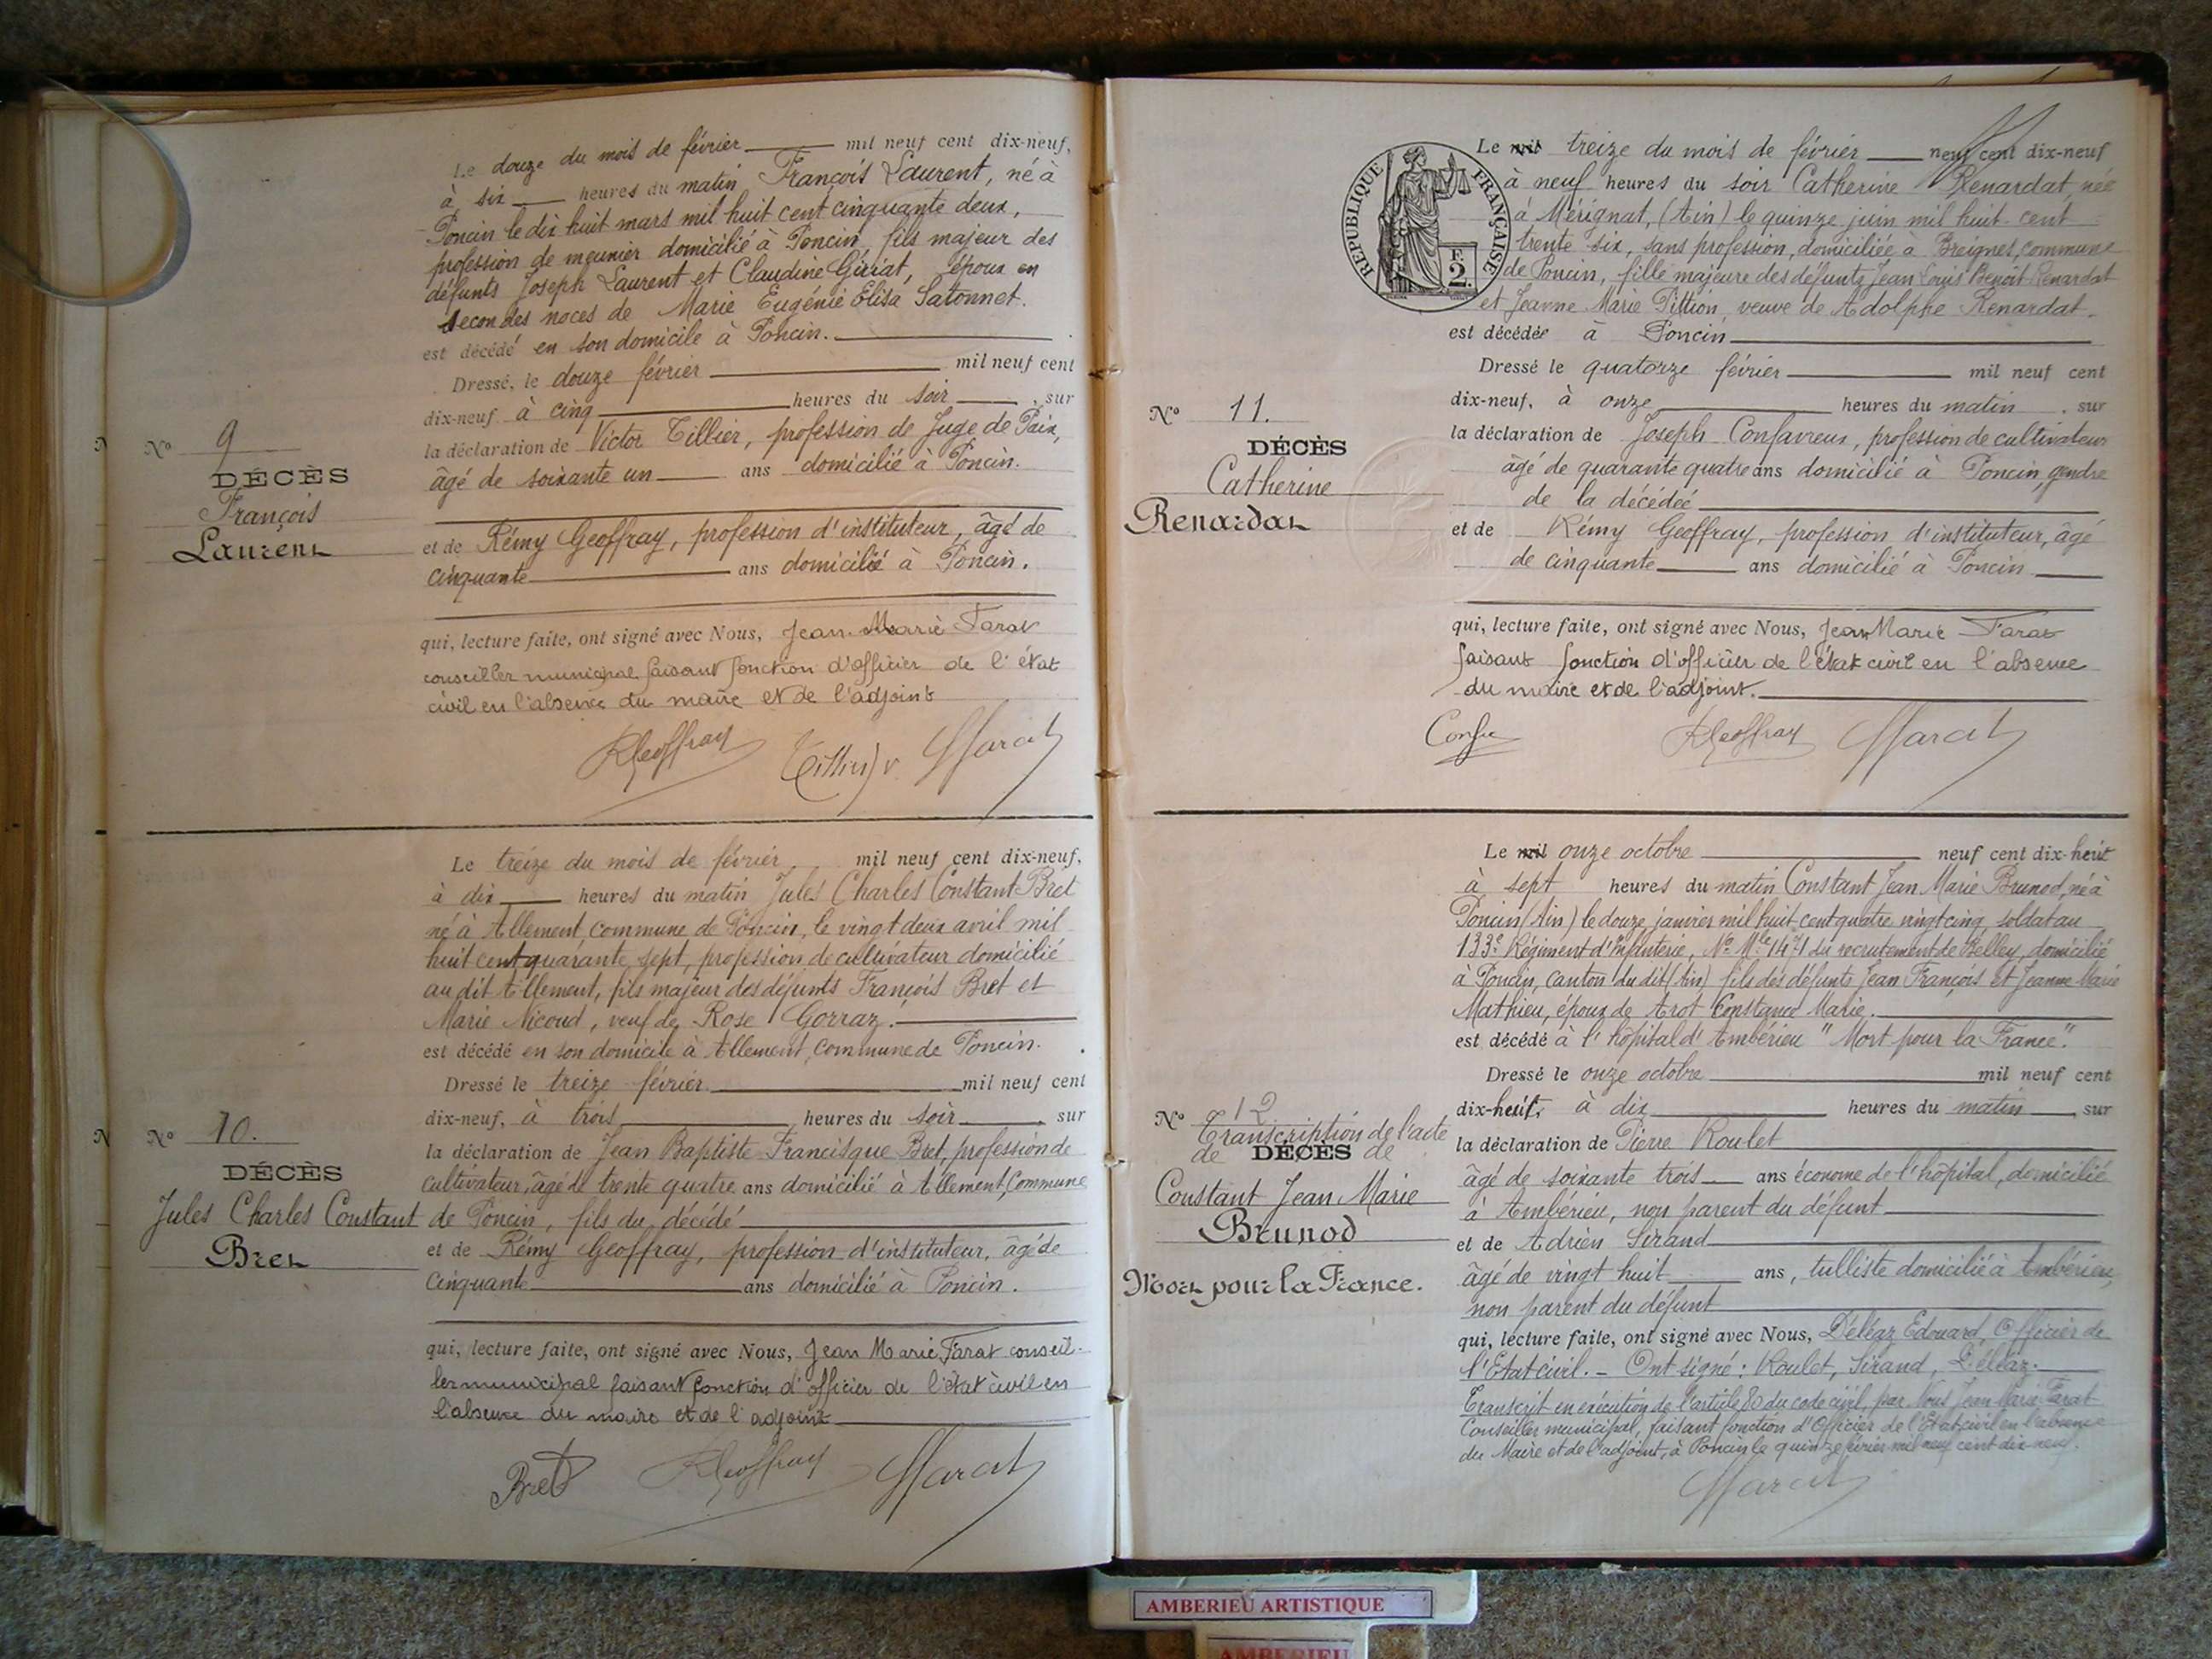 Le douze du mois de février mil neuf cent dix-neuf,
à six heures du matin François Laurent, né à
Poncin le dix huit mars mil huit cent cinquante deux,
profession de meunier domicilié à Poncin, fils majeur des
défunts Joseph Laurent et Claudine Girriat, époux en
secondes noces de Marie Eugénie Elisa Satonnet.
est décédé en son domicile à Poncin.
Dressé, le douze février mil neuf cent
dix-neuf à cinq heures du soir, sur
la déclaration de Victor Tillier, profession de Juge de Paix,
âgé de soixante un ans domicilié à Poncin.
N° 9
DÉCÈS
François
Laurent
et de Rémy Geoffray, profession d'instituteur, âgé de
cinquante ans domicilié à Poncin.
qui, lecture faite, ont signé avec Nous, Jean-Marie Farat
conseiller municipal faisant fonction d'officier de l'état
civil en l'absence du maire et de l'adjoint
RGeoffray Farat
Le treize du mois de février mil neuf cent dix-neuf,
à dix heures du matin Jules Charles Constant Bret
né à Allement, commune de Poncin, le vingt deux avril mil
huit cent quarante sept, profession de cultivateur domicilié
au dit Allement, fils majeur des défunts François Bret et
Marie Nicoud, veuf de Rose Gorraz.
est décédé en son domicile à Allement, Commune de Poncin.
Dressé le treize février mil neuf cent
dix-neuf, à trois heures du soir, sur
la déclaration de Jean Baptiste Francisque Bret, profession de
cultivateur, âgé de trente quatre ans domicilié à Allement, Commune
de Poncin, fils du décédé
N° 10.
DÉCÈS
Jules Charles Constant
Bret
et de Rémy Geoffray, profession d'instituteur, âgé de
cinquante ans domicilié à Poncin.
qui, lecture faite, ont signé avec Nous, Jean Marie Farat conseil-
ler municipal faisant fonction d'officier de l'état civil en
l'absence du maire et de l'adjoint
Bret RGeoffray Farat
RÉPUBLIQUE FRANÇAISE
F 2.
Le mil treize du mois de février neuf cent dix-neuf
à neuf heures du soir Catherine Renardat, née
à Mérignat, (Ain) le quinze juin mil huit cent
trente six, sans profession, domiciliée à Breignes, commune
de Poncin, fille majeure des défunts Jean Louis Benoit Renardat
et Jeanne Marie Pittion, veuve de Adolphe Renardat.
est décédée à Poncin
Dressé le quatorze février mil neuf cent
dix-neuf, à onze heures du matin, sur
la déclaration de Joseph Confavreux, profession de cultivateur
âgé de quarante quatre ans domicilié à Poncin, gendre
de la décédée
N° 11.
DÉCÈS
Catherine
Renardat
et de Rémy Geoffray, profession d'instituteur, âgé
de cinquante ans domicilié à Poncin
qui, lecture faite, ont signé avec Nous, Jean Marie Farat
faisant fonction d'officier de l'état civil en l'absence
du maire et de l'adjoint.
RGeoffray Farat
Le mil onze octobre neuf cent dix-huit
à sept heures du matin Constant Jean Marie Brunod, né à
Poncin (Ain) le douze janvier mil huit cent quatre vingt cinq, soldat au
133e Régiment d'Infanterie, No Mle 1471 du recrutement de Belley, domicilié
à Poncin, canton du dit (Ain) fils des défunts Jean François et Jeanne Marie
Mathieu, époux de Arot Constance Marie.
est décédé à l'hôpital d'Ambérieu "Mort pour la France".
Dressé le onze octobre mil neuf cent
dix-huit, à dix heures du matin, sur
la déclaration de Pierre Roulet
âgé de soixante trois ans économe de l'hôpital, domicilié
à Ambérieu, non parent du défunt
N° 12
Transcription de l'acte
de DÉCÈS de
Constant Jean Marie
Brunod
Mort pour la France.
et de Adrien Sirand
âgé de vingt huit ans, tulliste domicilié à Ambérieu,
non parent du défunt
qui, lecture faite, ont signé avec Nous, Déléaz Edouard, Officier de
l'Etat civil. - Ont signé: Roulet, Sirand, Déléaz.
Transcrit en exécution de l'article 80 du code civil, par Nous Jean Marie Farat
Conseiller municipal, faisant fonction d'Officier de l'Etat civil en l'absence
du Maire et de l'adjoint, à Poncin le quinze février mil neuf cent dix neuf.
Farat
AMBERIEU ARTISTIQUE
AMBERIEU